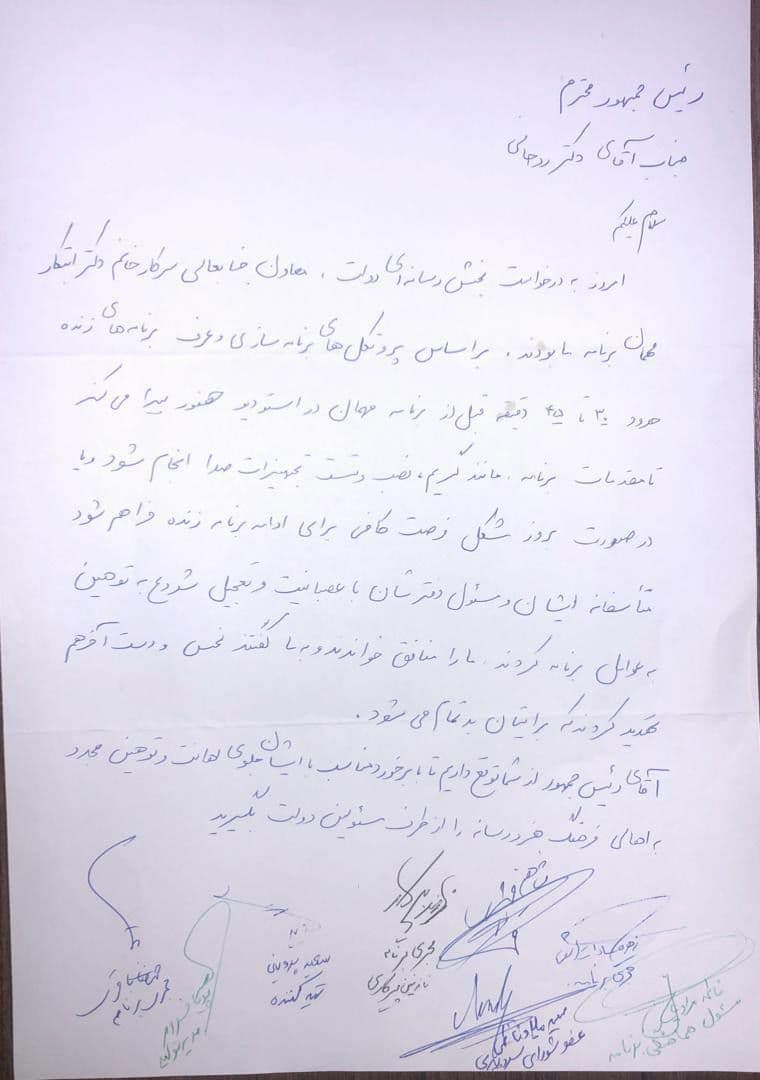 رئیس جمهور محترم
جناب آقای دکتر روحانی
سلام علیکم
امروز به درخواست بخش رسانه‌ای دولت، معاون جنابعالی سرکار خانم دکتر ابتکار
مهمان برنامه ما بودند. براساس پروتکل‌های برنامه سازی و عرف برنامه‌های زنده
حدود ۳۰ تا ۴۵ دقیقه قبل از برنامه مهمان در استودیو حضور پیدا می کند
تا مقدمات برنامه، مانند گریم، نصب و تست تجهیزات صدا انجام شود و یا
در صورت بروز مشکل فرصت کافی برای ادامه برنامه زنده فراهم شود
متأسفانه ایشان و مسئول دفترشان با عصبانیت و تعجیل شروع به توهین
به عوامل برنامه کردند. ما را منافق خواندند و به ما گفتند نجس و دست آخر هم
تهدید کردند که برایتان بد تمام می شود.
آقای رئیس جمهور از شما توقع داریم تا با برخورد مناسب با ایشان جلوی اهانت و توهین مجدد
به اهالی فرهنگ هنر و رسانه را از طرف مسئولین دولت بگیرید
مجری برنامه
نازنین پیرکاری
سعید پروینی
تهیه کننده
مجری برنامه
عضو شورای سردبیری
فاطمه
مسئول هماهنگی برنامه
مدیر تولید